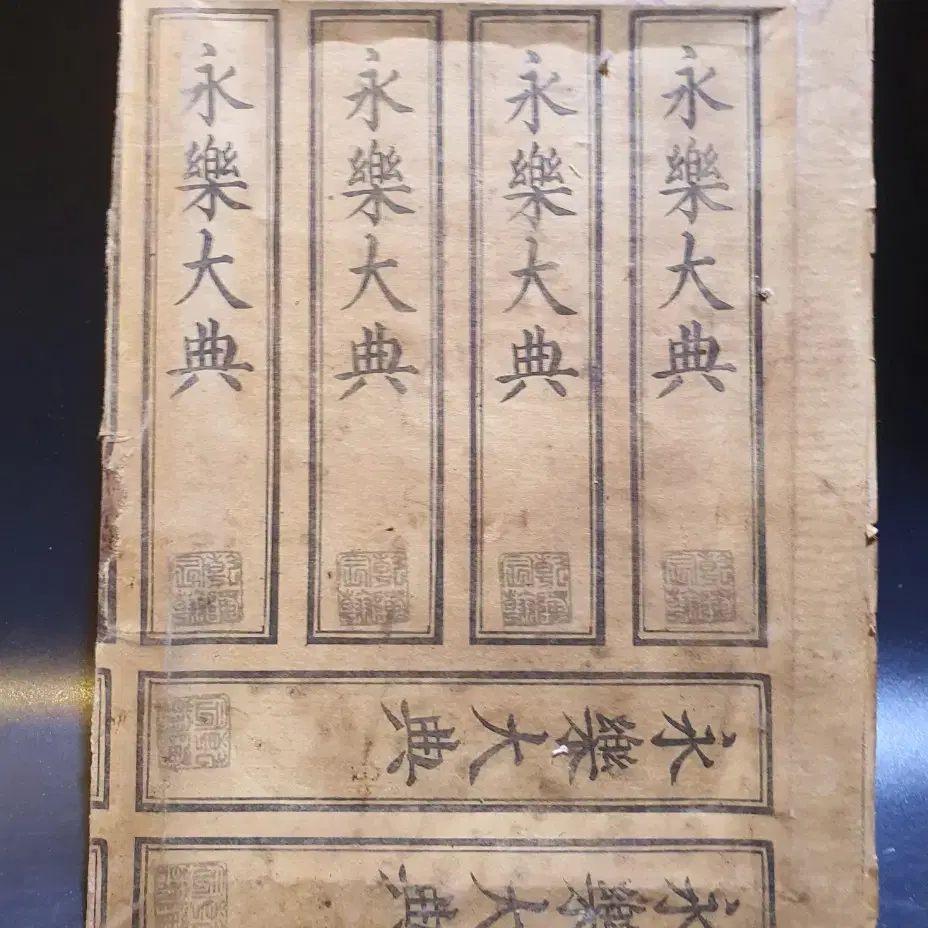 永樂大典
永樂大典
永樂大典
永樂大典
永樂大典
永樂大典